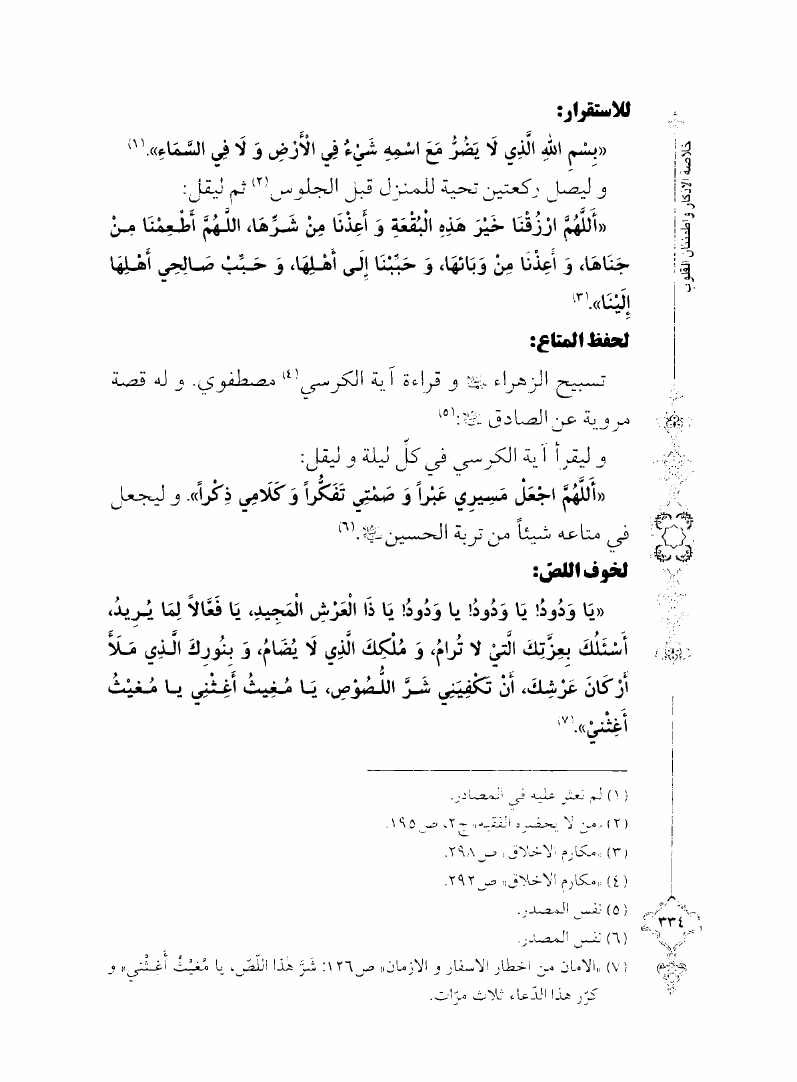 خلاصة الاذكار و اطمئنان القلوب
للاستقرار:
«بِسْمِ اللهِ الَّذِي لَا يَضُرُّ مَعَ اسْمِهِ شَيْءٌ فِي الْأَرْضِ وَ لَا فِي السَّمَاءِ».(١)
و ليصل ركعتين تحية للمنزل قبل الجلوس(٢) ثم ليقل:
«أَللَّهُمَّ ارْزُقْنَا خَيْرَ هَذِهِ الْبُقْعَةِ وَ أَعِذْنَا مِنْ شَـرِّهَا، اللَّـهُمَّ أَطْـعِمْنَا مِـنْ
جَنَاهَا، وَ أَعِذْنَا مِنْ وَبَائهَا، وَ حَبِّبْنَا إِلَى أَهْـلِهَا، وَ حَـبِّبْ صَـالِحِي أَهْـلِهَا
إِلَيْنَا».(٣)
لحفظ المتاع:
تسبيح الزهراء و قراءة آية الكرسي(٤) مصطفوي. و له قصة
مروية عن الصادق :(٥)
و ليقرأ آية الكرسي في كلّ ليلة و ليقل:
«أَللَّهُمَّ اجْعَلْ مَسِيرِي عَبْراً وَ صَمْتِي تَفَكُّراً وَ كَلَامِي ذِكْراً». و ليجعل
في متاعه شيئاً من تربة الحسين.(٦)
لخوف اللصّ:
«يَا وَدُودُ! يَا وَدُودُ! يا وَدُودُ! يَا ذَا الْعَرْشِ الْمَجِيدِ، يَا فَعَّالاً لِمَا يُـرِيدُ،
أَسْئَلُكَ بِعِزَّتِكَ الَّتيْ لا تُرامُ، وَ مُلْكِكَ الَّذِي لَا يُضَامُ، وَ بِنُورِكَ الَّـذِي مَـلَأَ
أَرْكَانَ عَرْشِكَ، أَنْ تَكْفِيَنِي شَرَّ اللُّصُوْصِ، يَـا مُـغِيثُ أَغِـثْنِي يـا مُـغيْثُ
أَغِثْنيْ».(٧)
(١) لم نعثر عليه في المصادر.
(٢) «من لا يحضره الفقيه» ج٢، ص١٩٥.
(٣) «مكارم الاخلاق» ص٢٩٨.
(٤) «مكارم الاخلاق» ص٢٩٢.
(٥) نفس المصدر.
(٦) نفس المصدر.
(٧) «الامان من اخطار الاسفار و الازمان» ص١٢٦: شَرَّ هذَا اللّصِّ، يا مُغيْثُ أَغِـثْني» و
كرّر هذا الدّعاء ثلاث مرّات.
٣٣٤